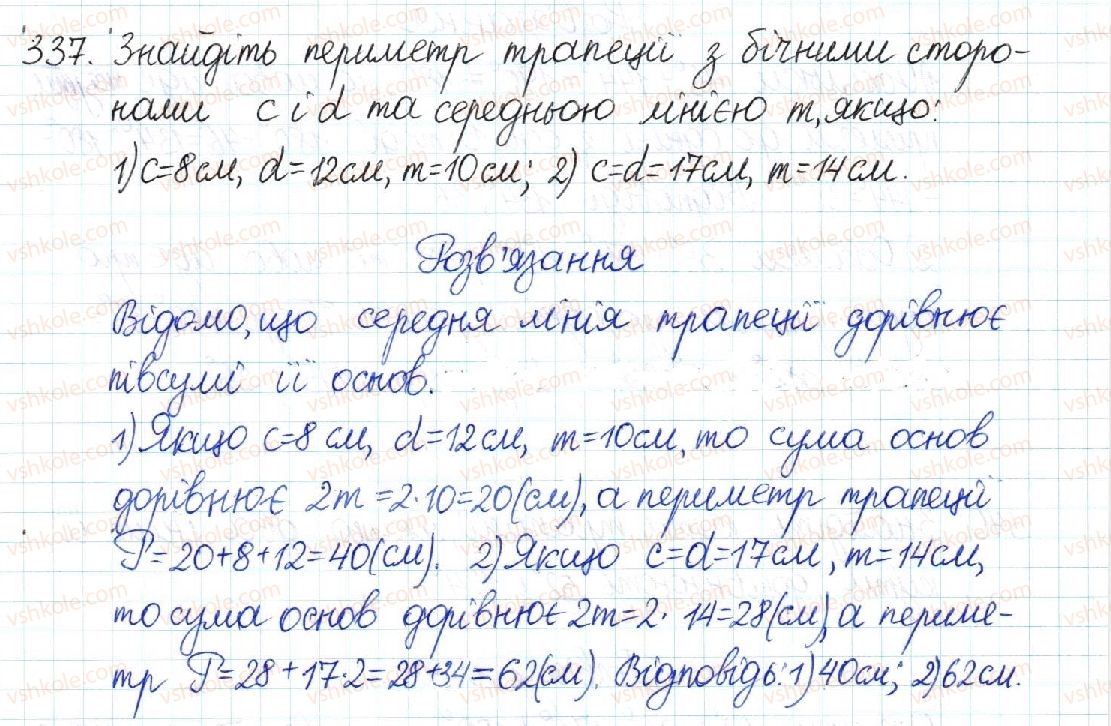 337. Знайдіть периметр трапеції з бічними сторо-
нами c і d та середньою лінією m, якщо:
1) c=8см, d=12см, m=10см; 2) c=d=17см, m=14см.
Розв'язання
Відомо, що середня лінія трапеції дорівнює
півсумі її основ.
1) Якщо c=8 см, d=12см, m=10см, то сума основ
дорівнює 2m=2·10=20(см), а периметр трапеції
P=20+8+12=40(см). 2) Якщо c=d=17см, m=14см,
то сума основ дорівнює 2m=2·14=28(см), а периме-
тр P=28+17·2=28+34=62(см). Відповідь: 1) 40см; 2) 62см.
vshkole.com